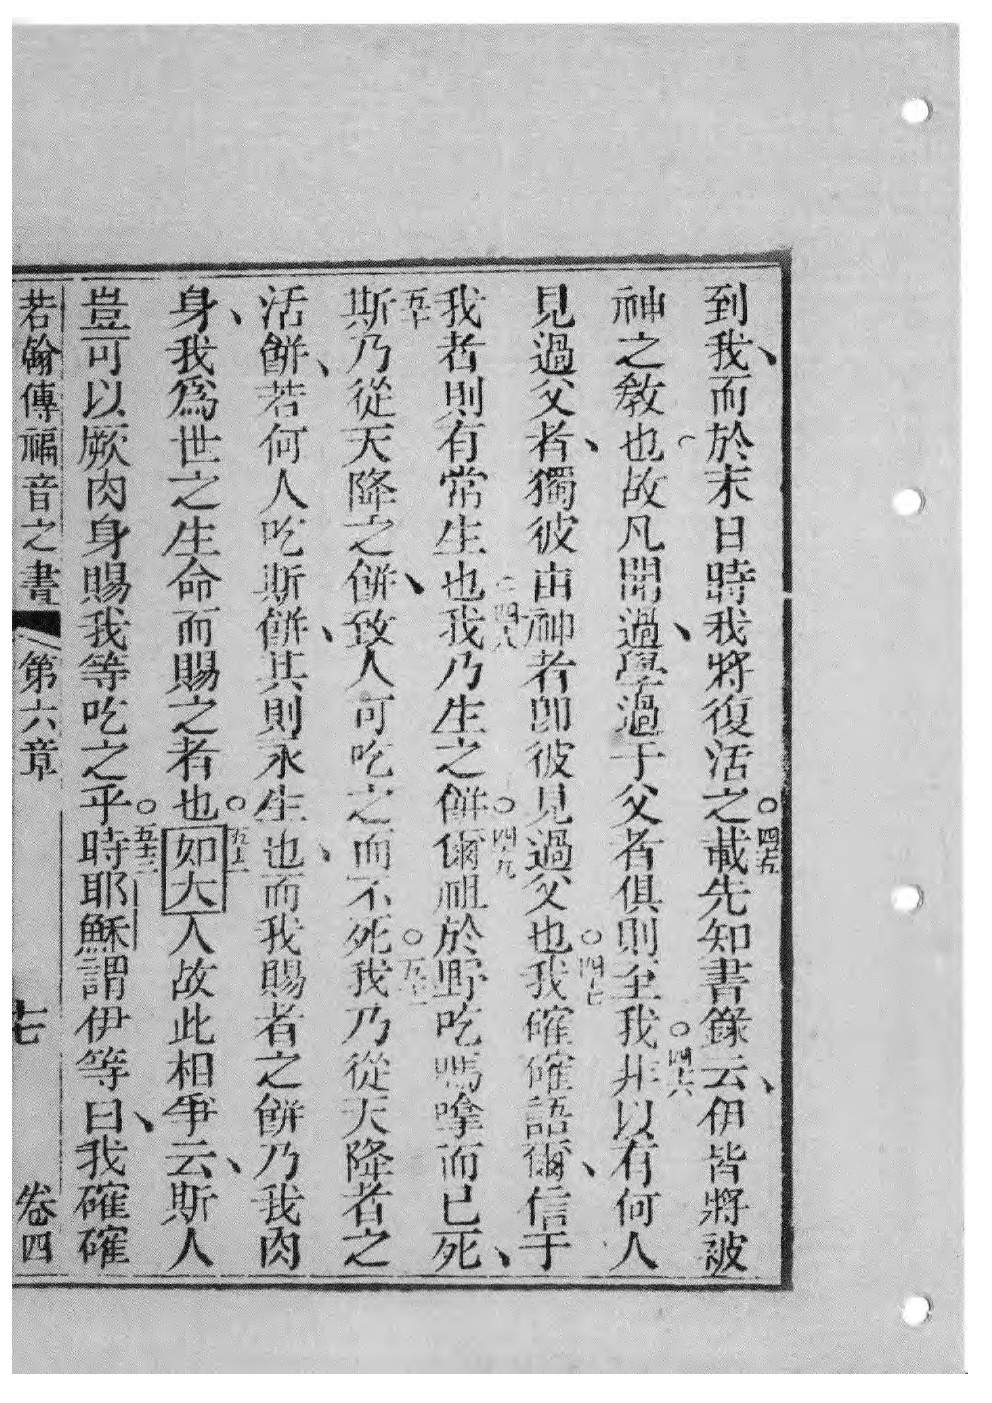 到我、而於末日時我將復活之。四五載先知書錄云、伊皆將被
神之教也故凡聞過、學過于父者俱則至我。四六非以有何人
見過父者、獨彼由神者卽彼見過父也。四七我確確語爾、信于
我者則有常生也。四八我乃生之餅。四九爾祖於野吃嗎嗱而已死、
五十斯乃從天降之餅、致人可吃之而不死。五十一我乃從天降者之
活餅、若何人吃斯餅、其則永生也、而我賜者之餅乃我肉
身、我爲世之生命而賜之者也。五十二如大人故此相爭云、斯人
豈可以厥肉身賜我等吃之乎。五十三時耶穌謂伊等曰、我確確
若翰傳福音之書 第六章 七 卷四